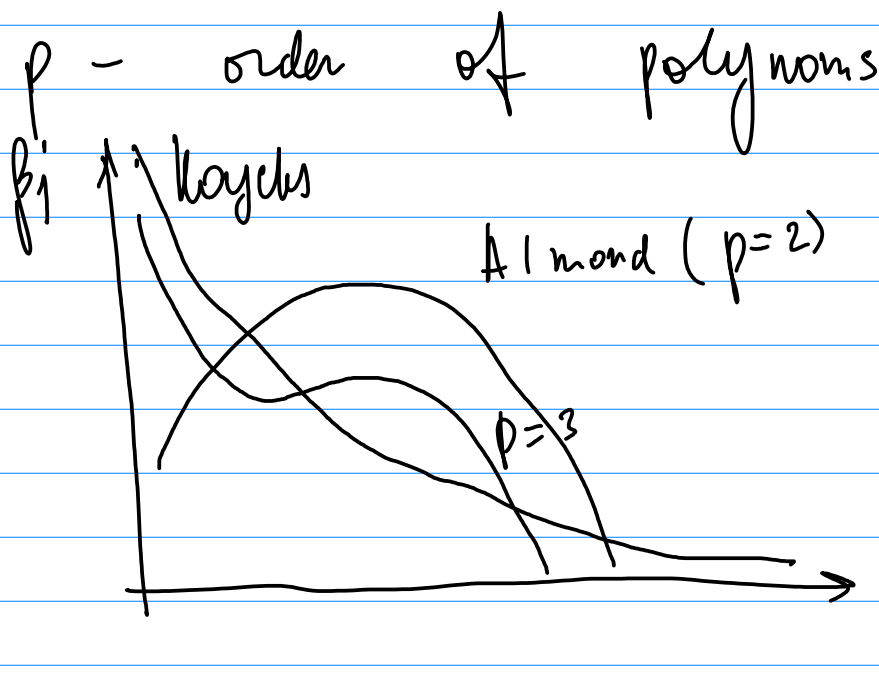 p - order of polynoms
βj Koycks
Almond (p=2)
p=3